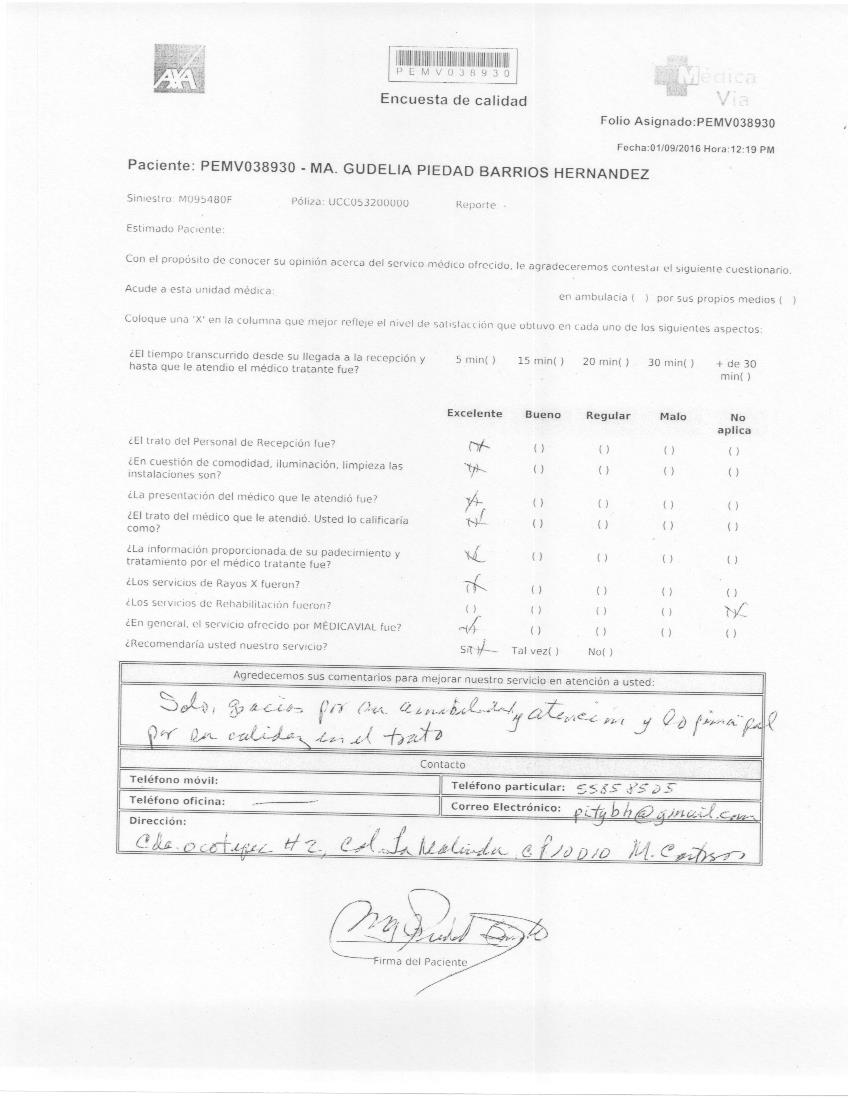 AXA
PEMV038930
Médica
Vía
Encuesta de calidad
Folio Asignado:PEMV038930
Fecha:01/09/2016 Hora:12:19 PM
Paciente: PEMV038930 - MA. GUDELIA PIEDAD BARRIOS HERNANDEZ
Siniestro: M095480F Póliza: UCC053200000 Reporte: -
Estimado Paciente:
Con el propósito de conocer su opinión acerca del servico médico ofrecido, le agradeceremos contestar el siguiente cuestionario.
Acude a esta unidad médica: en ambulacia ( ) por sus propios medios ( )
Coloque una 'X' en la columna que mejor refleje el nivel de satisfacción que obtuvo en cada uno de los siguientes aspectos:
¿El tiempo transcurrido desde su llegada a la recepción y 5 min( ) 15 min( ) 20 min( ) 30 min( ) + de 30
hasta que le atendio el médico tratante fue? min( )
Excelente Bueno Regular Malo No
aplica
¿El trato del Personal de Recepción fue? (X) ( ) ( ) ( ) ( )
¿En cuestión de comodidad, iluminación, limpieza las (X) ( ) ( ) ( ) ( )
instalaciones son?
¿La presentación del médico que le atendió fue? (X) ( ) ( ) ( ) ( )
¿El trato del médico que le atendió. Usted lo calificaría (X) ( ) ( ) ( ) ( )
como?
¿La información proporcionada de su padecimiento y (X) ( ) ( ) ( ) ( )
tratamiento por el médico tratante fue?
¿Los servicios de Rayos X fueron? (X) ( ) ( ) ( ) ( )
¿Los servicios de Rehabilitación fueron? ( ) ( ) ( ) ( ) (X)
¿En general, el servicio ofrecido por MÉDICAVIAL fue? (X) ( ) ( ) ( ) ( )
¿Recomendaría usted nuestro servicio? Si(X) Tal vez( ) No( )
Agredecemos sus comentarios para mejorar nuestro servicio en atención a usted:
Solo, gracias por su amabilidad y atención y lo principal
por su calidez en el trato
Contacto
Teléfono móvil:
Teléfono particular: 55858505
Teléfono oficina:
Correo Electrónico: pitybh@gmail.com
Dirección:
Cda. Ocotepec # 2, Col. La Malinche CP 10010 M. Contreras
Firma del Paciente